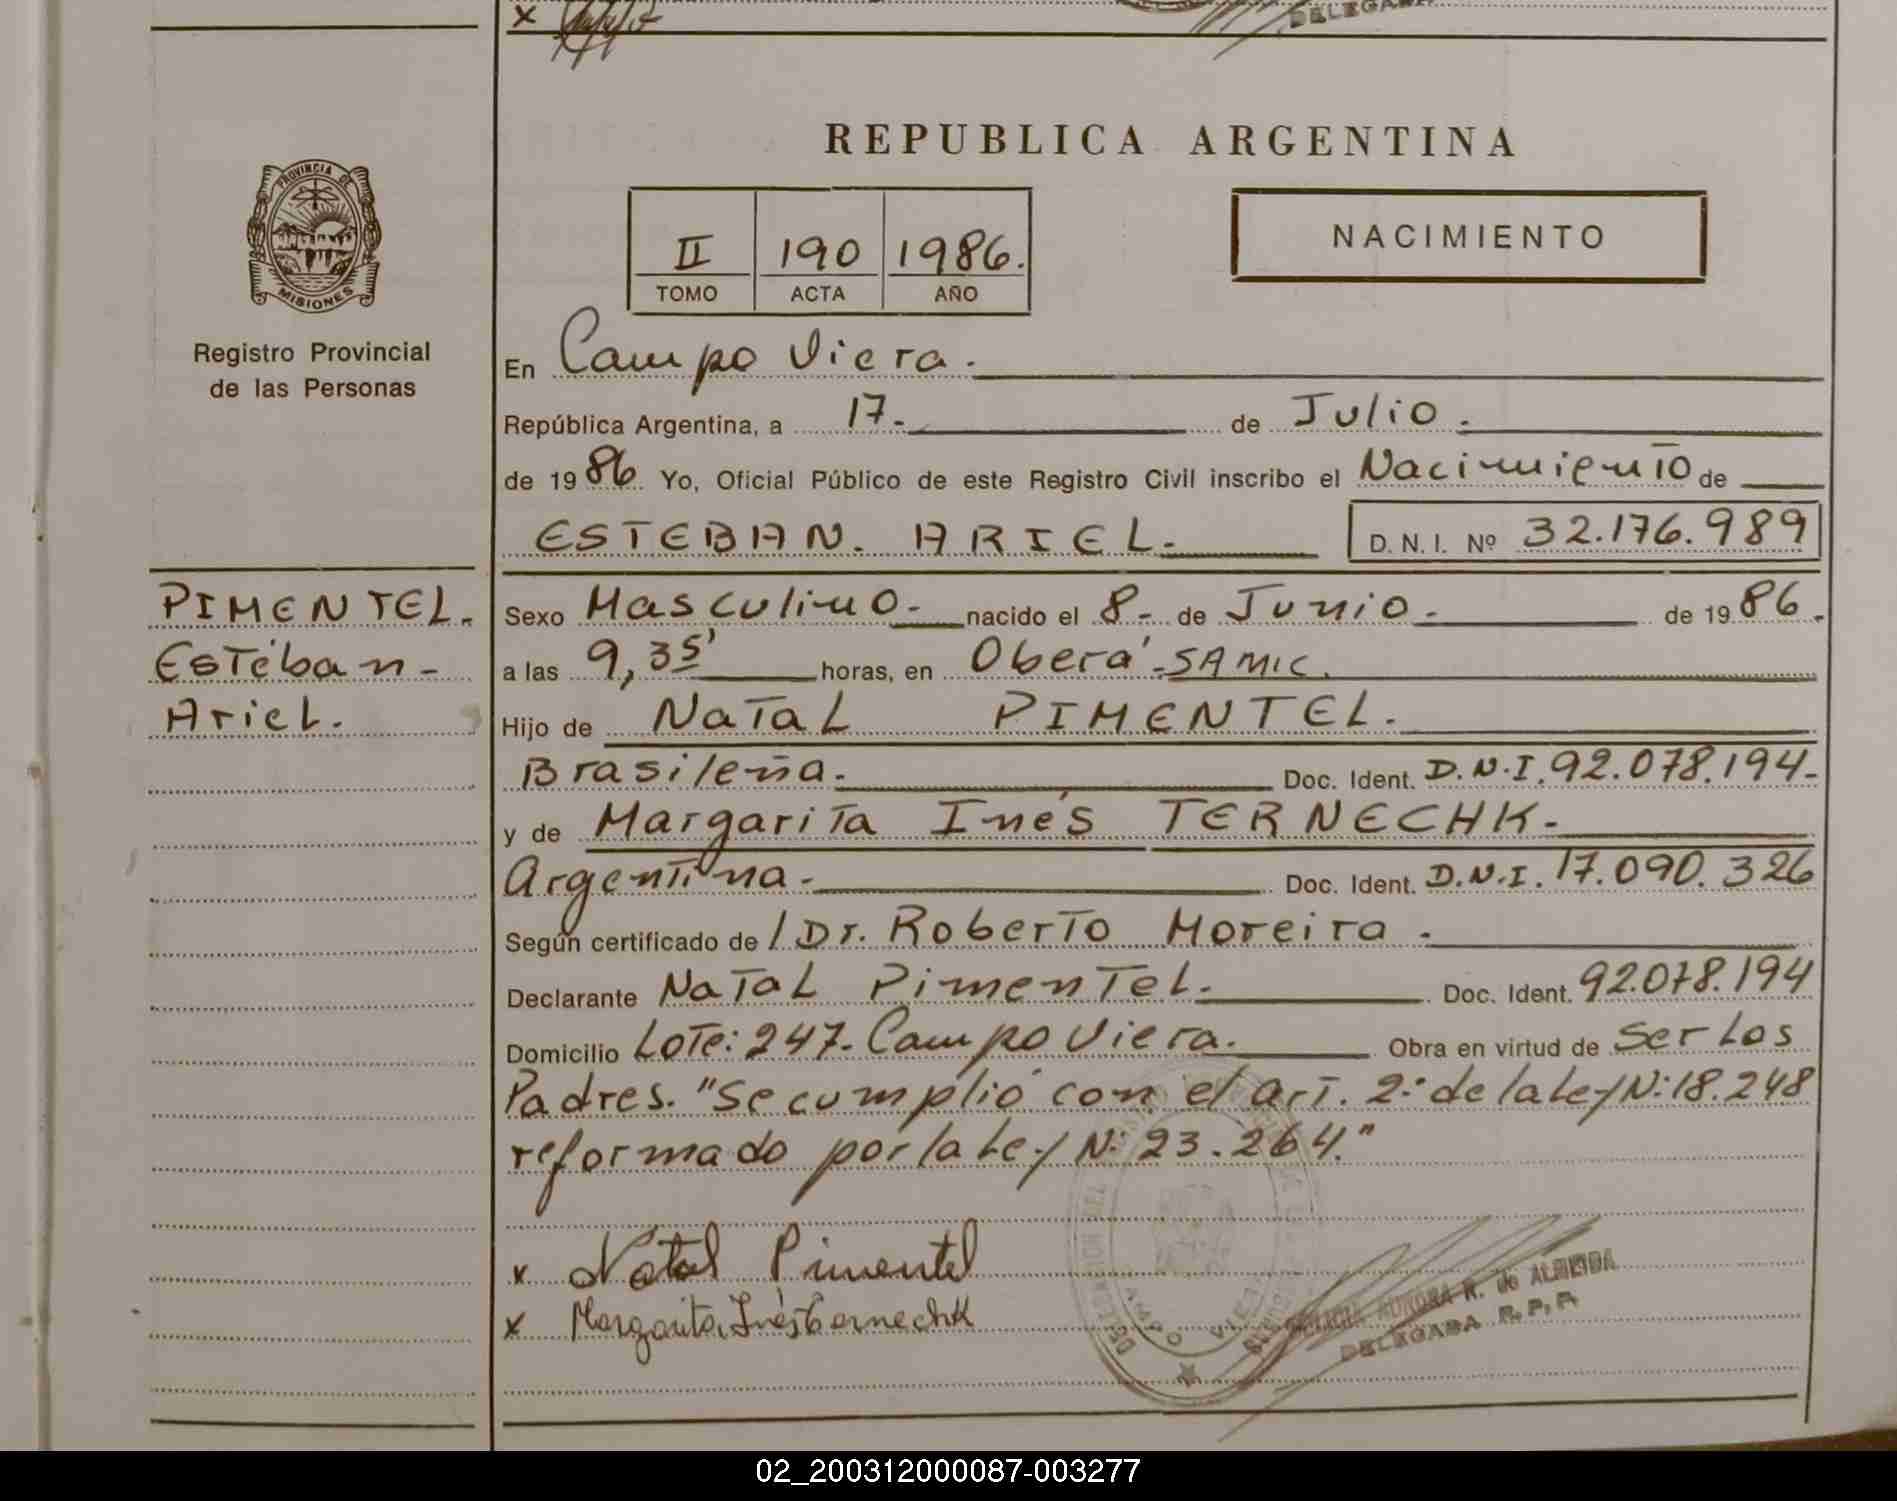 DELEGADA
REPUBLICA ARGENTINA
PROVINCIA DE
MISIONES
Registro Provincial
de las Personas
II 190 1986.
TOMO ACTA AÑO
NACIMIENTO
En Campo Viera.
República Argentina, a 17.- de Julio.
de 1986. Yo, Oficial Público de este Registro Civil inscribo el Nacimiento de
ESTEBAN. ARIEL.- D. N. I. Nº 32.176.989
PIMENTEL.
Esteban-
Ariel.
Sexo Masculino.- nacido el 8.- de Junio.- de 1986.
a las 9,35' horas, en Oberá-SAMIC.
Hijo de Natal PIMENTEL.
Brasileña.- Doc. Ident. D.N.I. 92.078.194.-
y de Margarita Inés TERNECHK.-
Argentina.- Doc. Ident. D.N.I. 17.090.326
Según certificado de / Dr. Roberto Moreira.
Declarante Natal Pimentel.- Doc. Ident. 92.078.194
Domicilio Lote: 247- Campo Viera. Obra en virtud de ser los
Padres. "Se cumplió con el art. 2º de la Ley Nº 18.248
reformado por la Ley Nº 23.264."
x Natal Pimentel
x Margarita Inés Ternechk
AURORA R. de ALMEIDA
DELEGADA R. P. P.
DELEGACION DEL
CAMPO VIERA
02_200312000087-003277